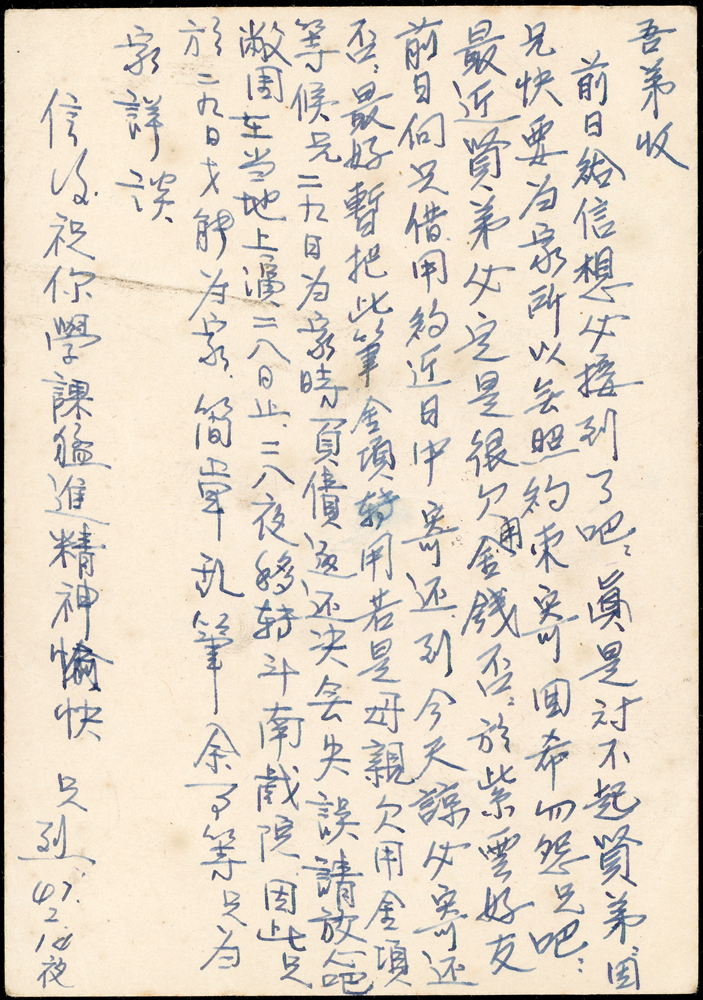 吾弟收
前日給信想必接到了吧：真是対不起賢弟，因
兄快要为家所以無照約束寄回希勿怨兄吧：
最近賢弟必定是很欠用金錢否：於紫雲好友
前日向兄借用約近日中寄还到今天諒必寄还
否：最好暫把此筆金項轉用若是母親欠用金項
等候兄二九日为家時頁債返还決無失誤請放心吧
敝團在当地上演二八日止．二八夜移转斗南戲院因此兄
於二九日才能为家．简单乱筆余了等兄为
家詳談
信後祝你學課猛進精神愉快 兄 47.2.18夜